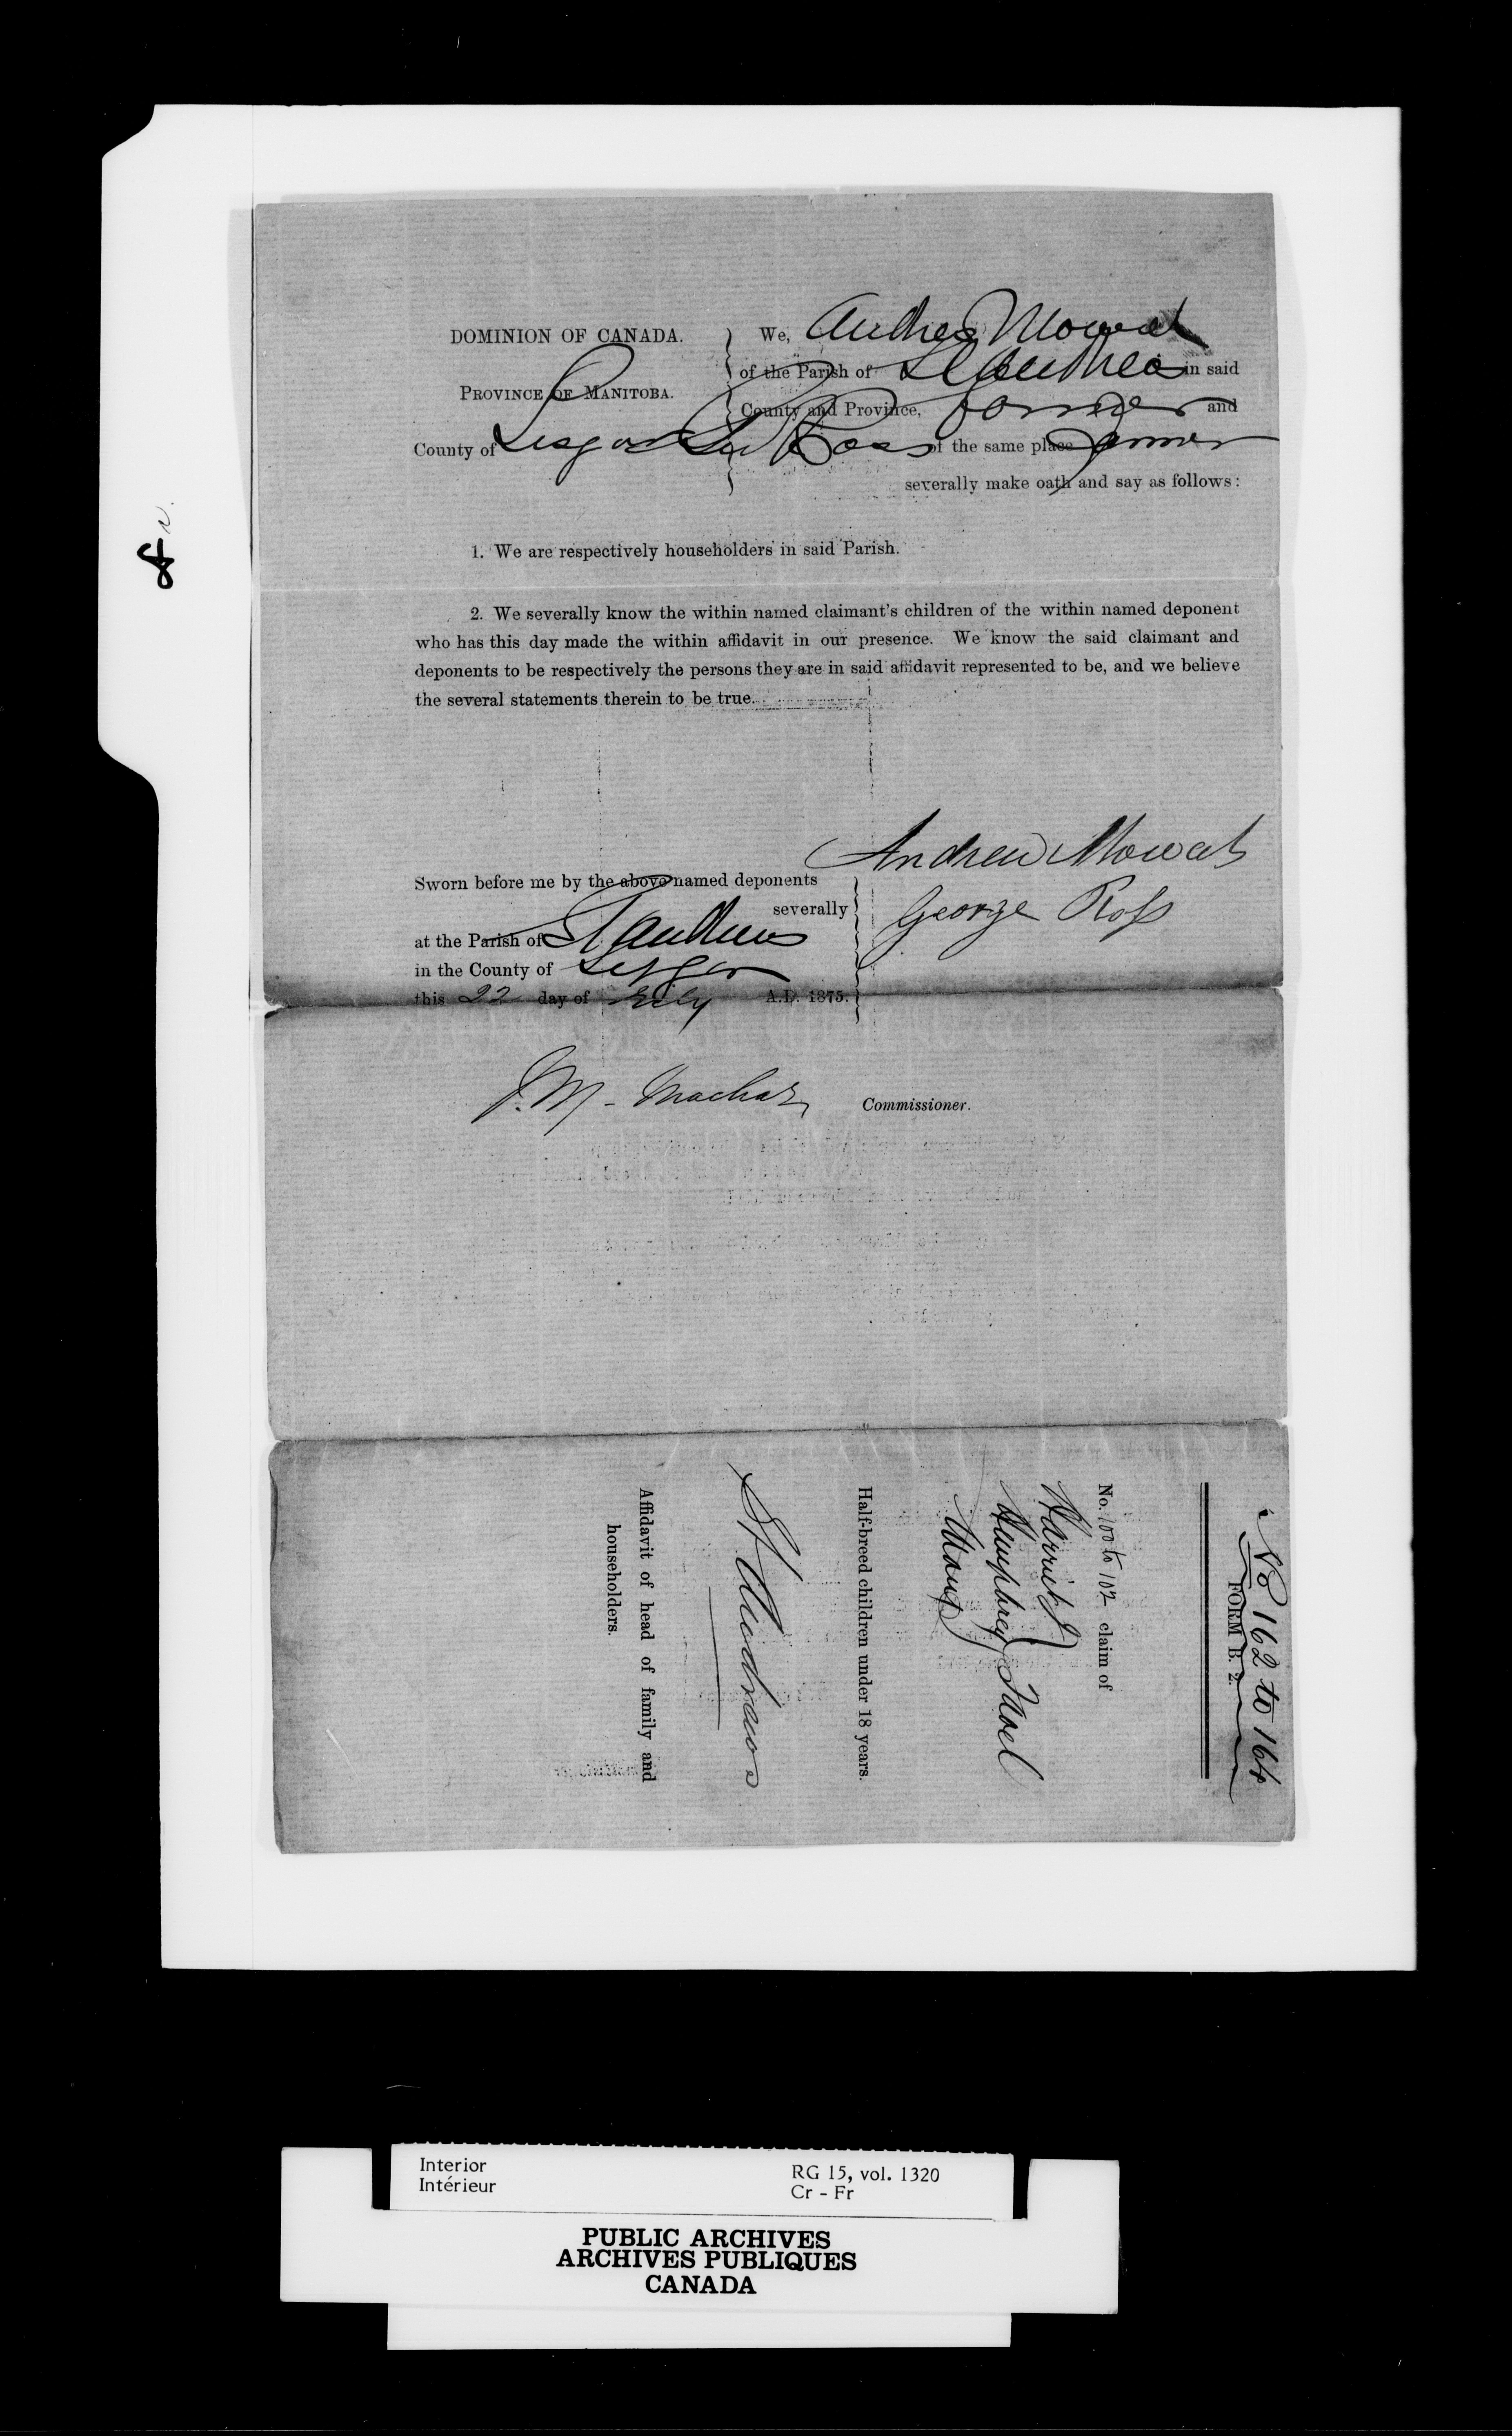 DOMINION OF CANADA.
PROVINCE OF MANITOBA.
County of Lisgar
We, Andrew Mowat
of the Parish of St Andrews in said
County and Province, Farmer and
Geo Ross of the same place Farmer
severally make oath and say as follows:
1. We are respectively householders in said Parish.
2. We severally know the within named claimant's children of the within named deponent
who has this day made the within affidavit in our presence. We know the said claimant and
deponents to be respectively the persons they are in said affidavit represented to be, and we believe
the several statements therein to be true.
Sworn before me by the above named deponents
severally
at the Parish of St Andrews
in the County of Lisgar
this 22 day of July A.D. 1875.
Andrew Mowat
George Ross
J. M. Machar
Commissioner.
No 162 to 164
FORM B. 2.
No. 100 to 102 claim of
Harriet J
Humphrey
Favel
Half-breed children under 18 years.
St Andrews
Affidavit of head of family and
householders.
Interior
Intérieur
RG 15, vol. 1320
Cr - Fr
PUBLIC ARCHIVES
ARCHIVES PUBLIQUES
CANADA